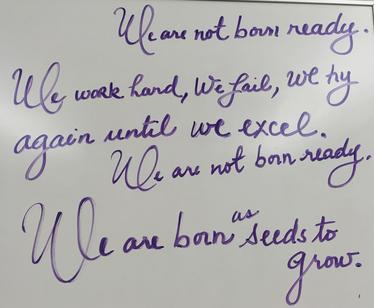 We are not born ready.
We work hard, We fail, we try
again until we excel.
We are not born ready.
We are born as seeds to
grow.